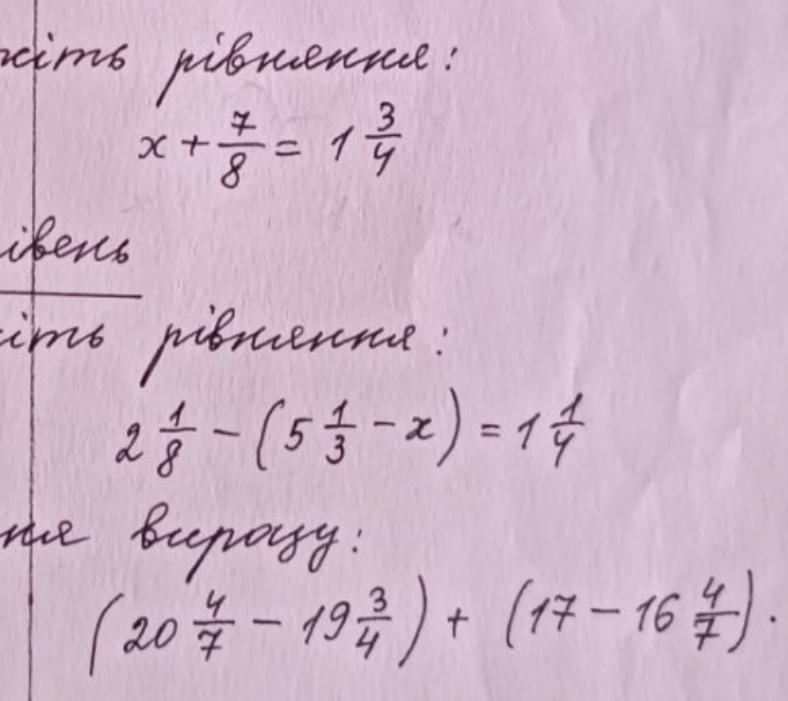 жіть рівняння:
x + 7/8 = 1 3/4
івень
іть рівняння:
2 1/8 - (5 1/3 - x) = 1 1/4
ня виразу:
(20 4/7 - 19 3/4) + (17 - 16 4/7).